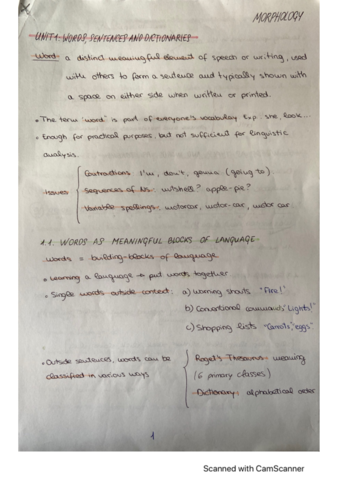 MORPHOLOGY
UNIT 1: WORDS, SENTENCES AND DICTIONARIES
Word: a distinct meaningful element of speech or writing, used
with others to form a sentence and typically shown with
a space on either side when written or printed.
• The term 'word' is part of everyone's vocabulary Exp: she, look...
• Enough for practical purposes, but not sufficient for linguistic
analysis.
Issues
Contractions I'm, don't, gonna (going to)
Sequences of Ns: nutshell? apple-pie?
Variable spellings: motorcar, motor-car, motor car
1.1. WORDS AS MEANINGFUL BLOCKS OF LANGUAGE
Words = building-blocks of language
• Learning a language → put words together
• Single words outside context: a) Warning shouts "Fire!"
b) Conventional commands "Lights!"
c) Shopping lists "Carrots, eggs"
• Outside sentences, words can be
classified in various ways
Roget's Thesaurus: meaning
(6 primary classes)
Dictionary: alphabetical order
1
Scanned with CamScanner